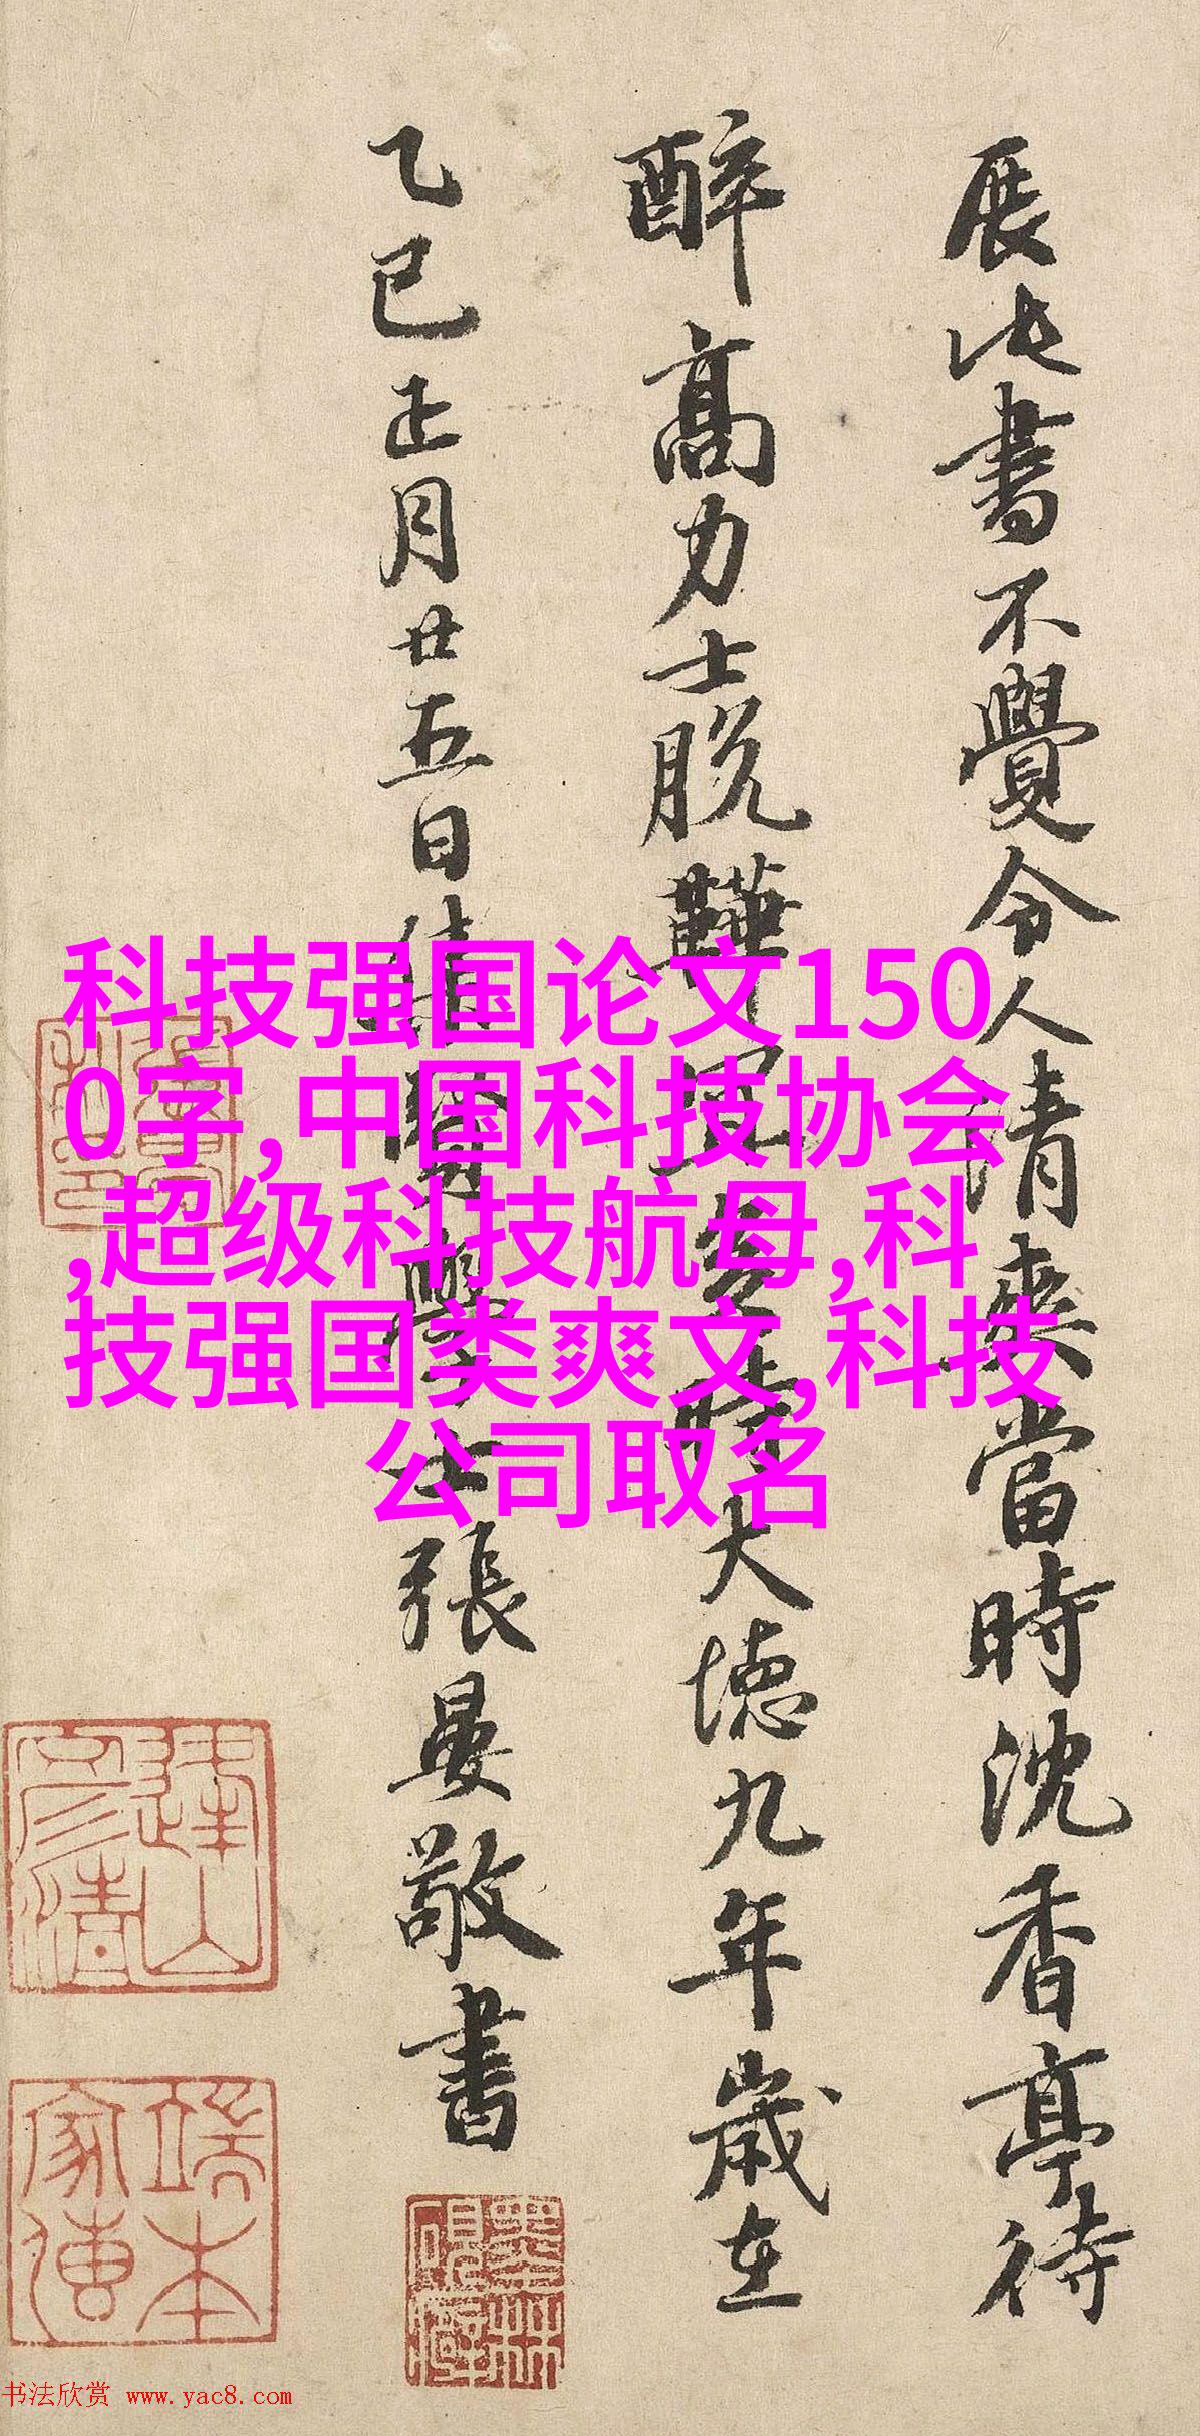 展此書不覺令人清爽當時沈香亭待
醉高力士脱鞾
大德九年歲在
乙巳正月廿五日集賢學士張晏敬書
科技强国论文150
0字,中国科技协会
,超级科技航母,科
技强国类爽文,科技
公司取名
端本家傳
书法欣赏 www.yac8.com